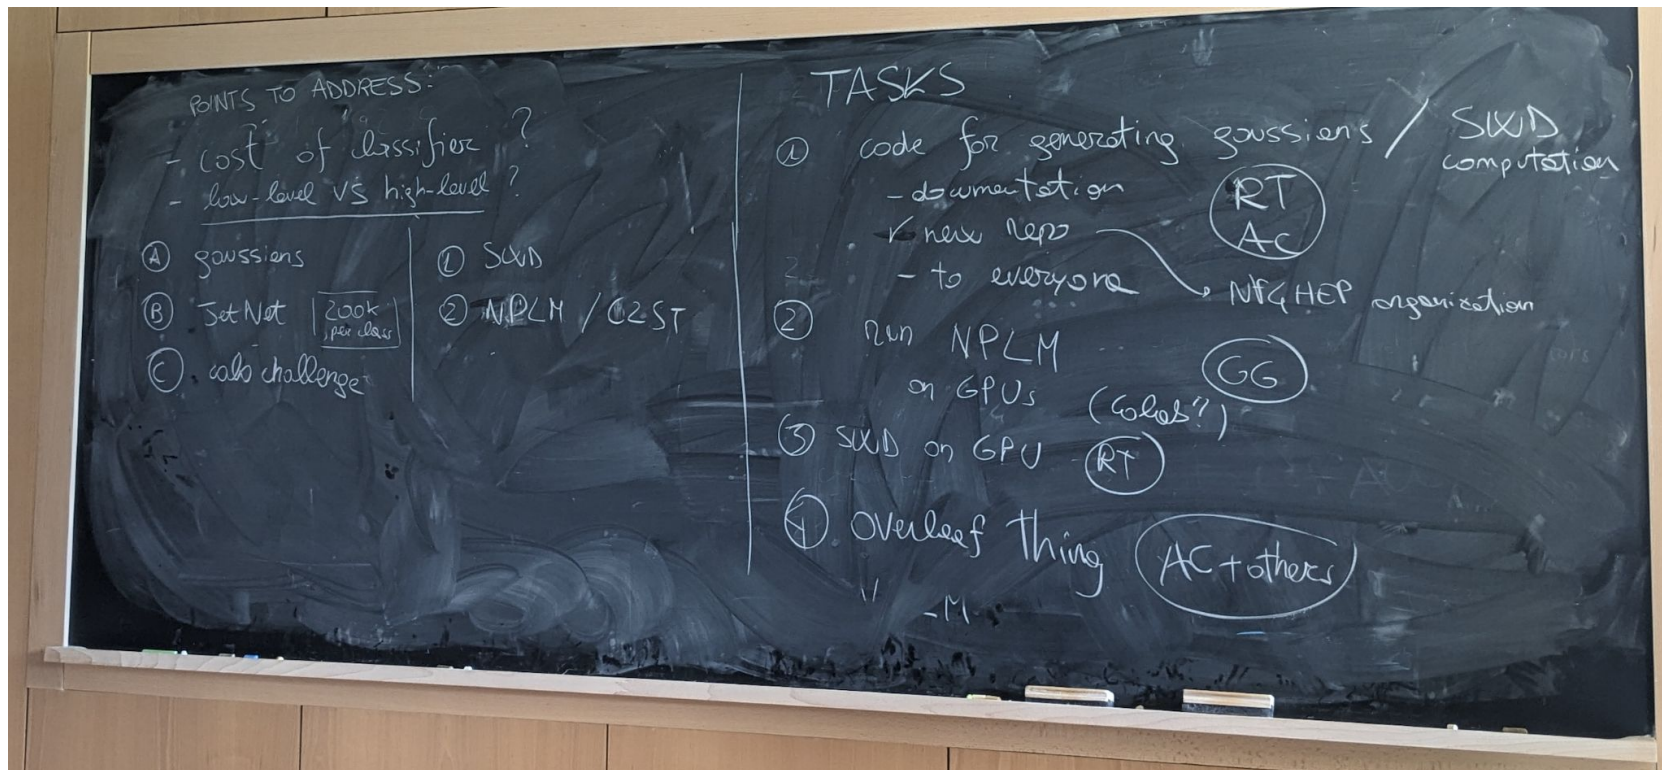 POINTS TO ADDRESS:
- cost of classifier ?
- low-level VS high-level ?
A gaussians
B JetNet 200k per class
C calo challenge
1 SWD
2 NPLM / C2ST
TASKS
1 code for generating gaussians / SWD computation
- documentation
RT
AC
✓ new repo → NF4HEP organization
- to everyone
2 run NPLM
on GPUs
GG
3 SWD on GPU
RT
4 overleaf thing
AC + others
- M